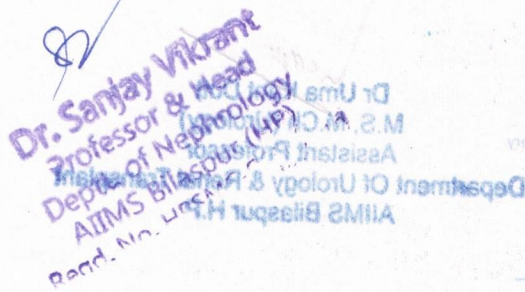 Dr. Sanjay Vikrant
Professor & Head
Deptt. of Nephrology
AIIMS Bilaspur (HP)
Regd. No.
Dr Uma
M.S. M.Ch
Assistant Professor
Department Of Urology & Renal Transplant
AIIMS Bilaspur H.P